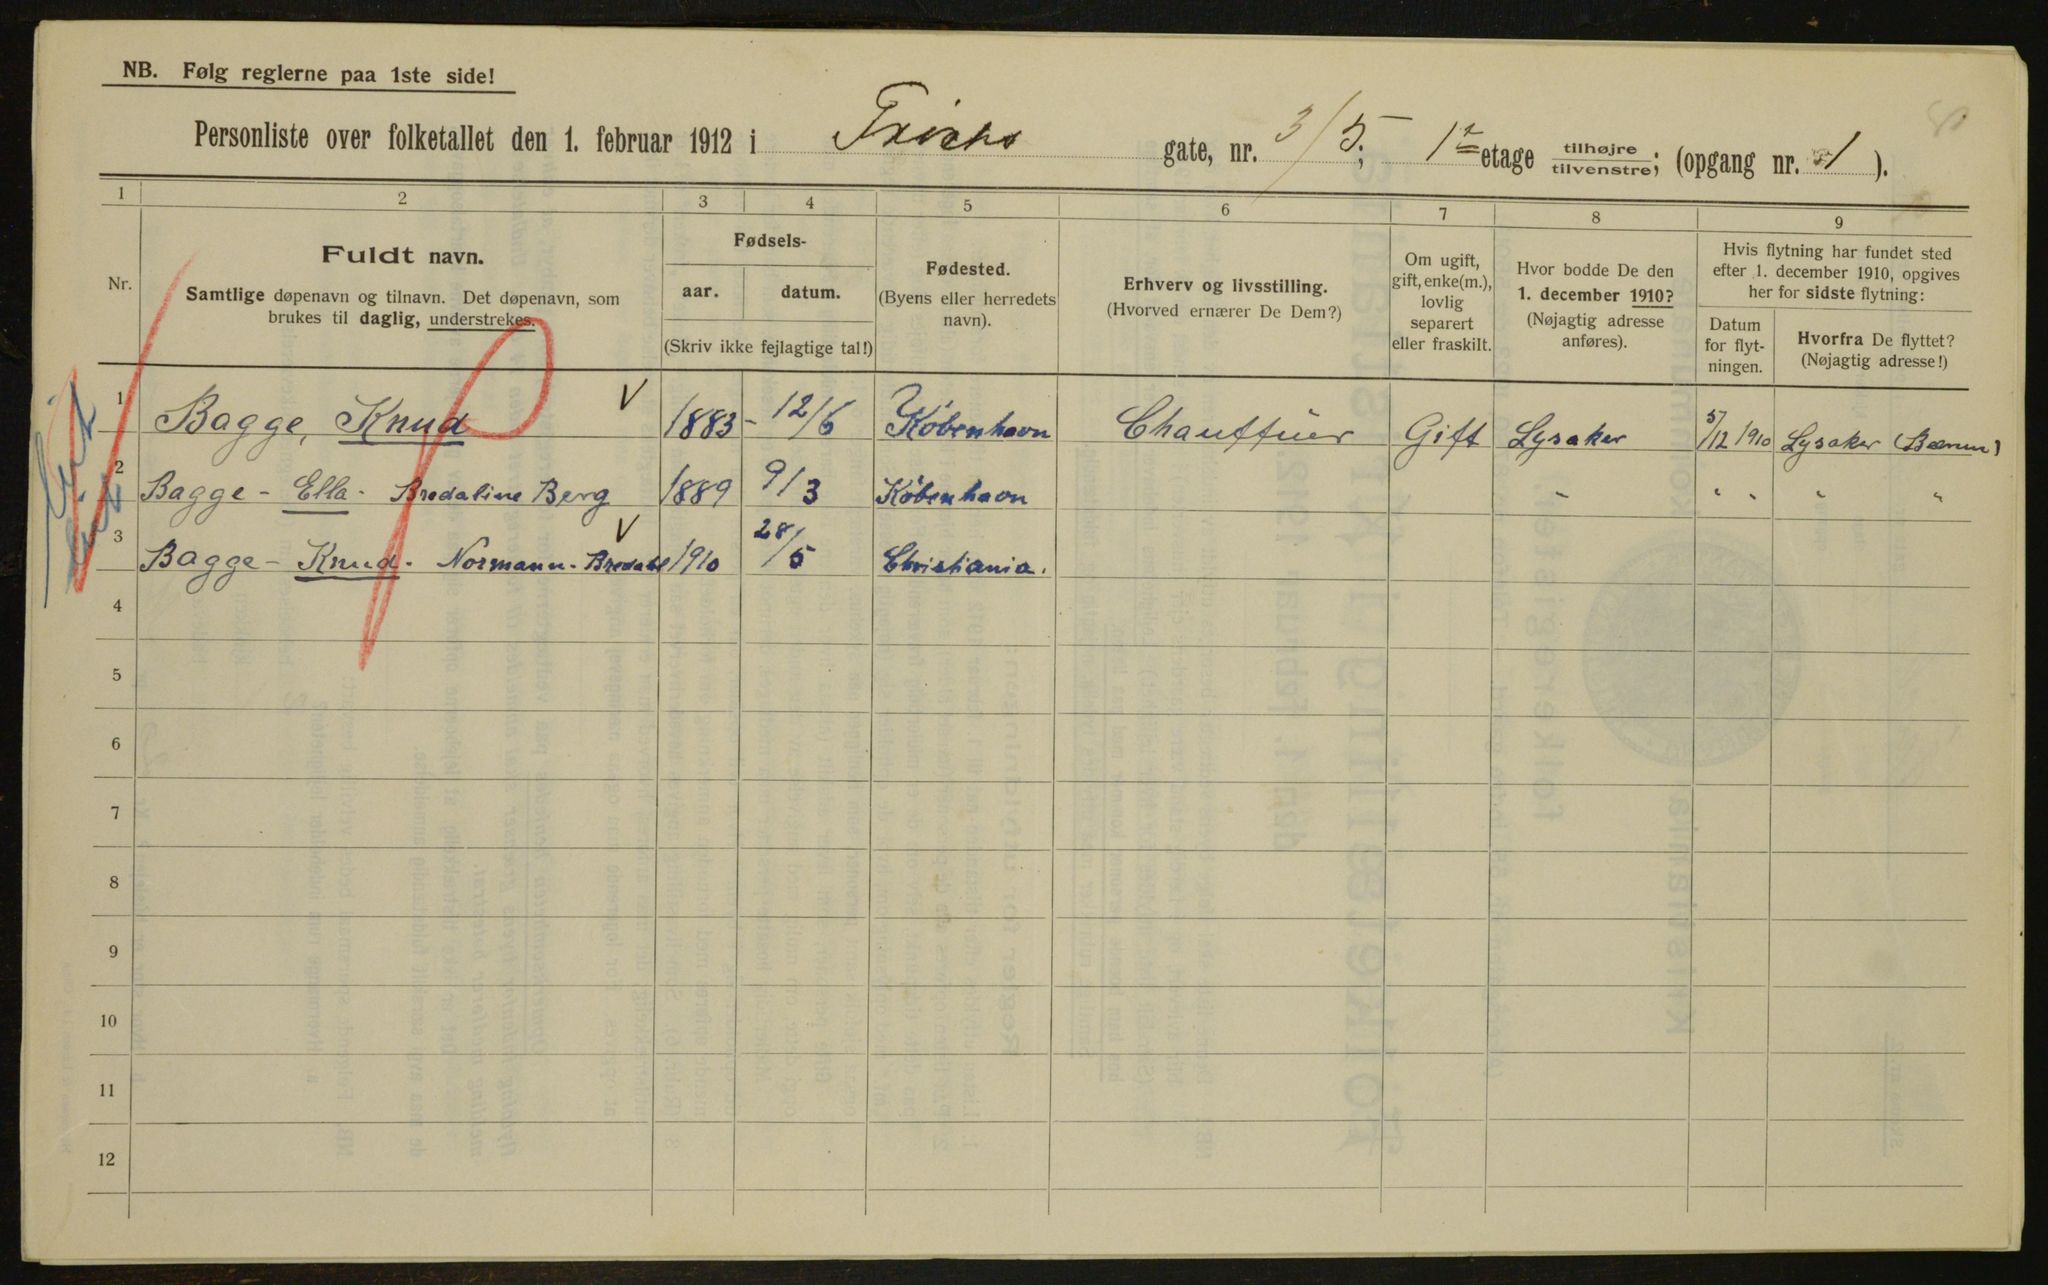 NB. Følg reglerne paa 1ste side!
Personliste over folketallet den 1. februar 1912 i Friers gate, nr. 3/5; 1ste etage tilhøjre/tilvenstre; (opgang nr. 1 ).
1 2 3 4 5 6 7 8 9
Nr.
Fuldt navn.
Samtlige døpenavn og tilnavn. Det døpenavn, som
brukes til daglig, understrekes.
Fødsels-
aar. datum.
(Skriv ikke fejlagtige tal!)
Fødested.
(Byens eller herredets
navn).
Erhverv og livsstilling.
(Hvorved ernærer De Dem?)
Om ugift,
gift, enke(m.),
lovlig
separert
eller fraskilt.
Hvor bodde De den
1. december 1910?
(Nøjagtig adresse
anføres).
Hvis flytning har fundet sted
efter 1. december 1910, opgives
her for sidste flytning:
Datum
for flyt-
ningen.
Hvorfra De flyttet?
(Nøjagtig adresse!)
1 Bagge, Knud 1883 - 12/6 København Chauffuer Gift Lysaker 5/12 1910 Lysaker (Bærum)
2 Bagge - Ella - Bredaline Berg 1889 9/3 København " " " " "
3 Bagge - Knud - Normann - Bredahl 1910 28/5 Christiania.
4
5
6
7
8
9
10
11
12